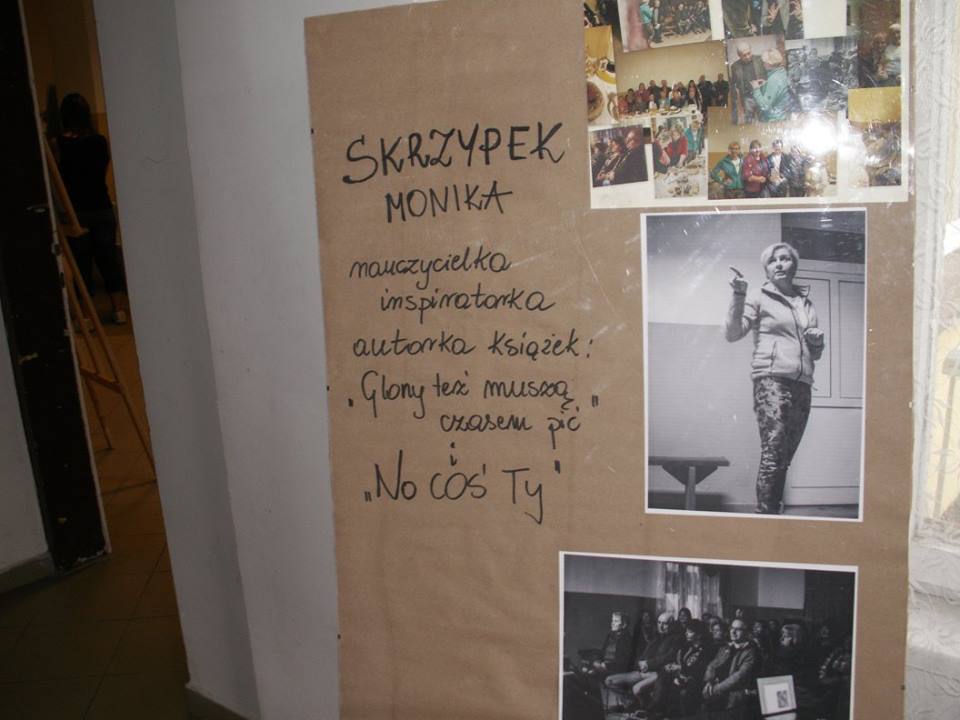 SKRZYPEK
MONIKA
nauczycielka
inspiratorka
autorka książek:
„Glony też muszą
czasem pić"
i
„No coś Ty"